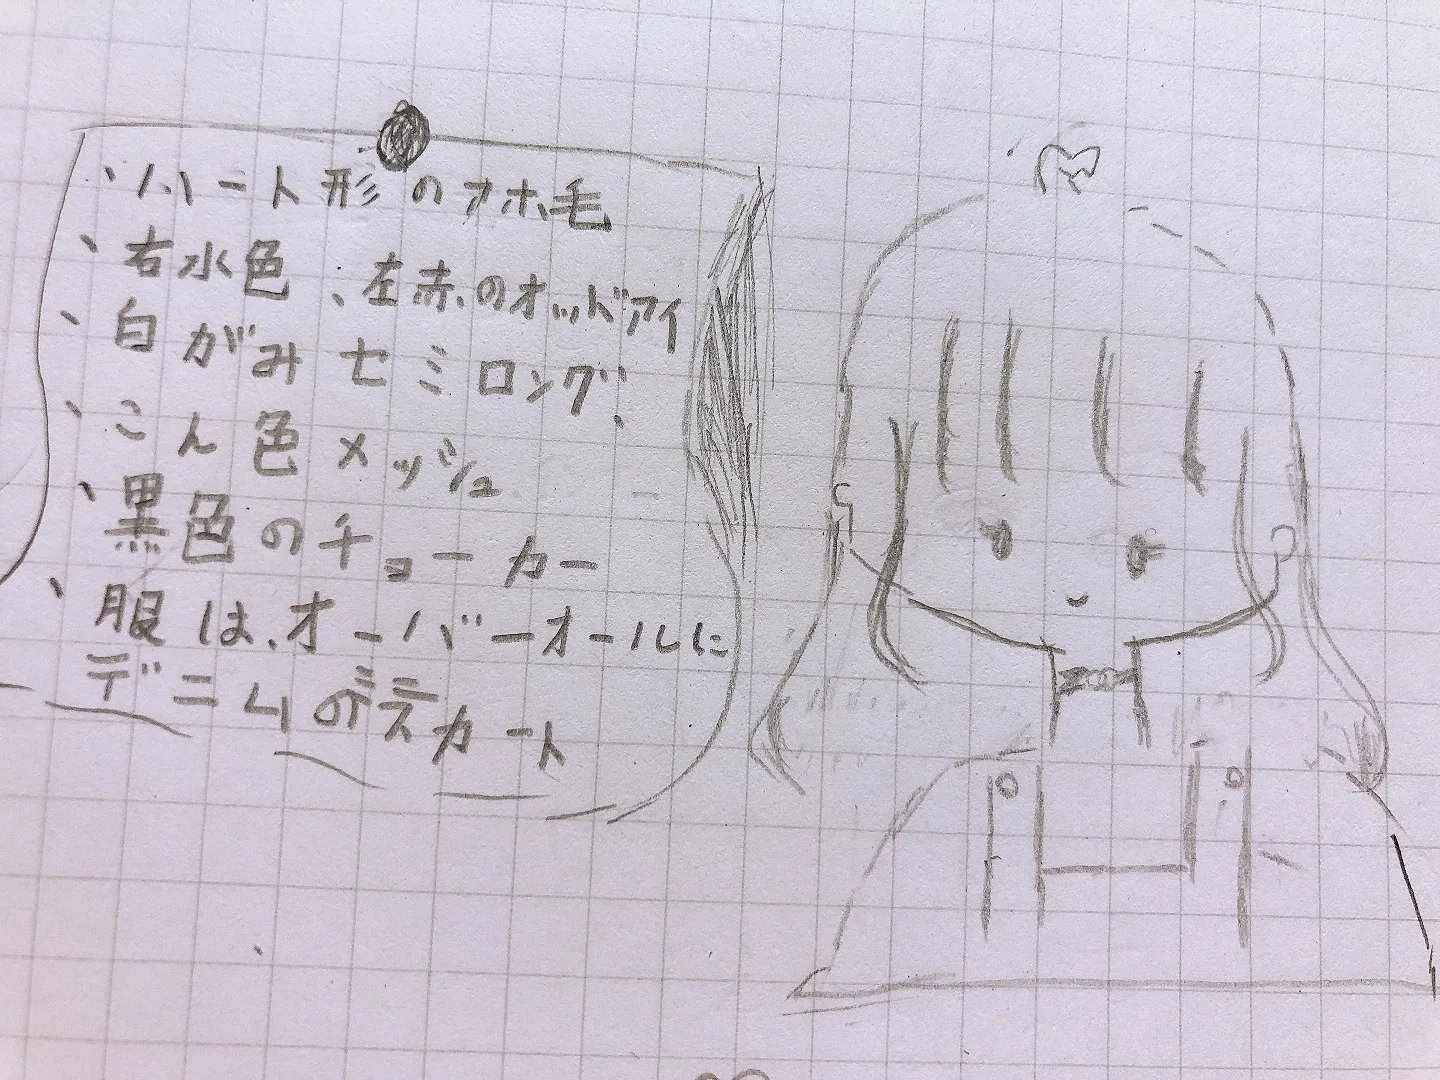 、ハート形のアホ毛
、右水色、左赤のオッドアイ
、白がみセミロング、
、こん色メッシュ
、黒色のチョーカー
、服は、オーバーオールに
デニムのミニスカート